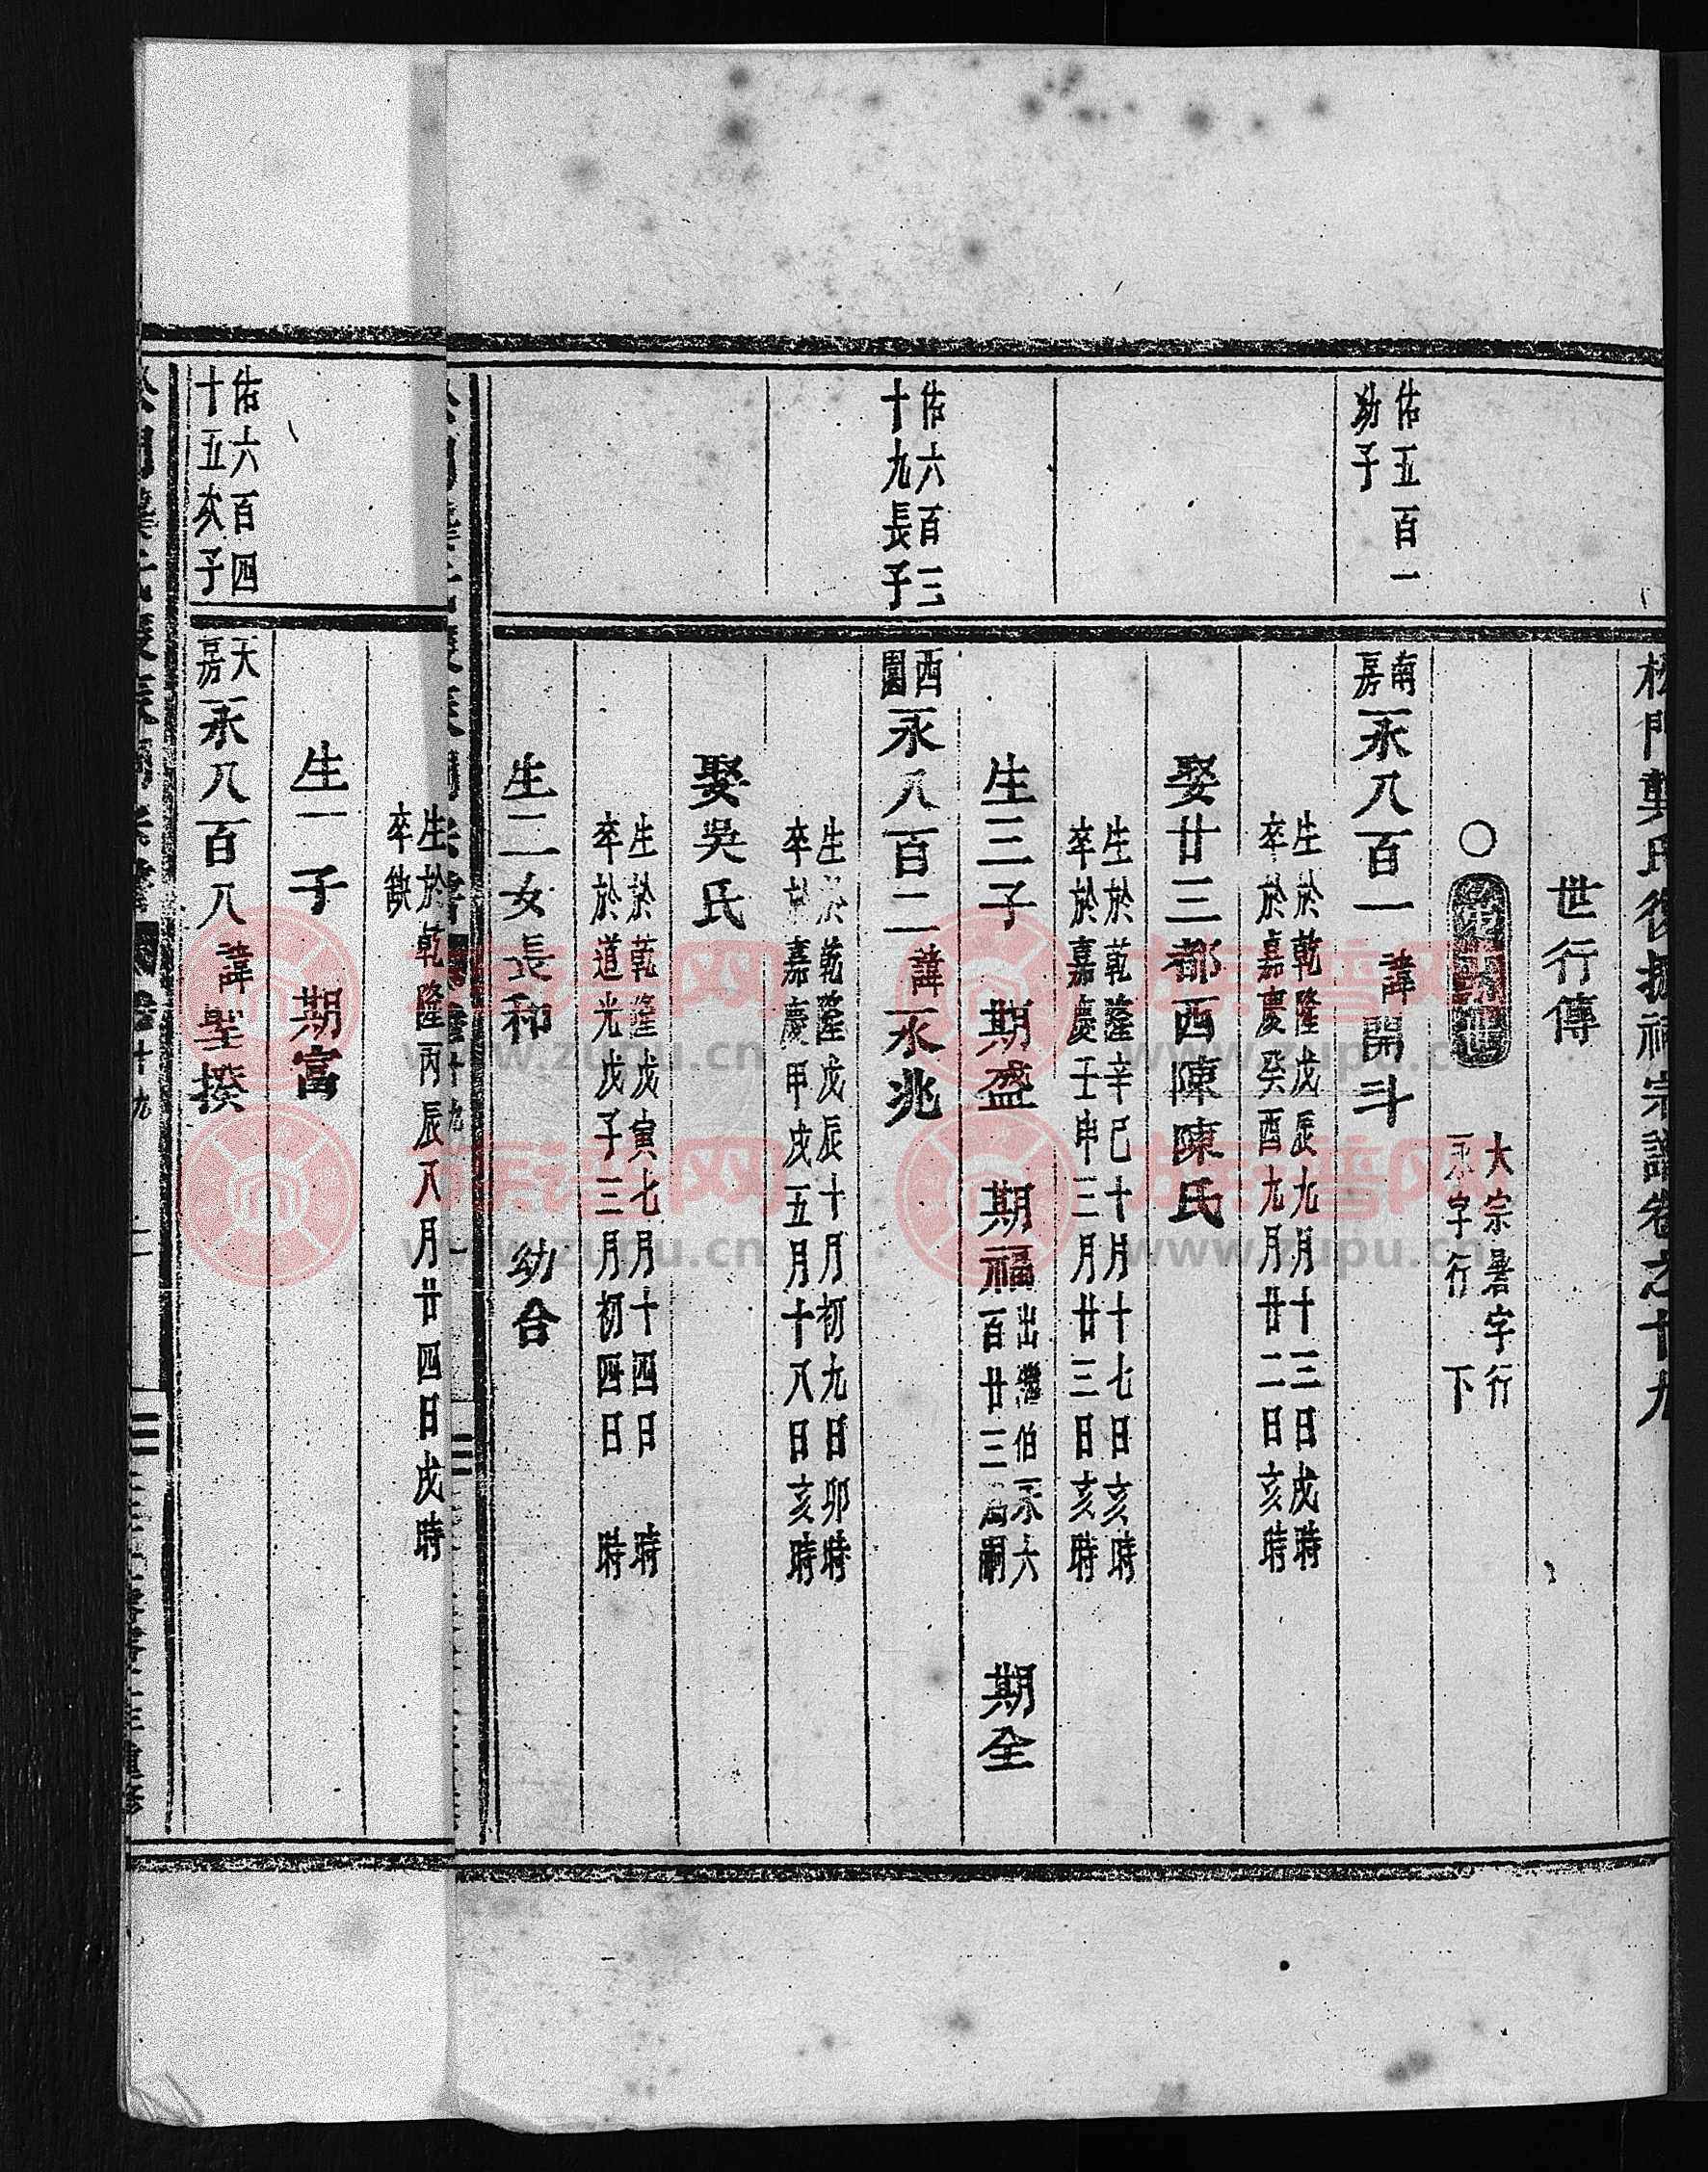 松門龔氏復振祠宗譜卷之十九
世行傳
○
大宗暑字行
永字行 下
佑五百一
幼子
南房永八百一 諱開斗
生於乾隆戊辰九月十三日戌時
卒於嘉慶癸酉九月廿二日亥時
娶廿三都西陳陳氏
生於乾隆辛巳十月十七日亥時
卒於嘉慶壬申三月廿三日亥時
生三子 期盛 期福 出繼伯永六百廿三為嗣 期全
佑六百三
十九長子
西園永八百二 諱永兆
生於乾隆戊辰十月初九日卯時
卒於嘉慶甲戌五月十八日亥時
娶吳氏
生於乾隆戊寅七月十四日 時
卒於道光戊子三月初四日 時
生二女長和 幼合
生於乾隆丙辰八月廿四日戌時
卒缺
生一子 期富
佑六百四
十五次子
大房永八百八 諱聖揆
卷十九
重修
族谱网
www.zupu.cn
族谱网
www.zupu.cn
族谱网
www.zupu.cn
族谱网
www.zupu.cn